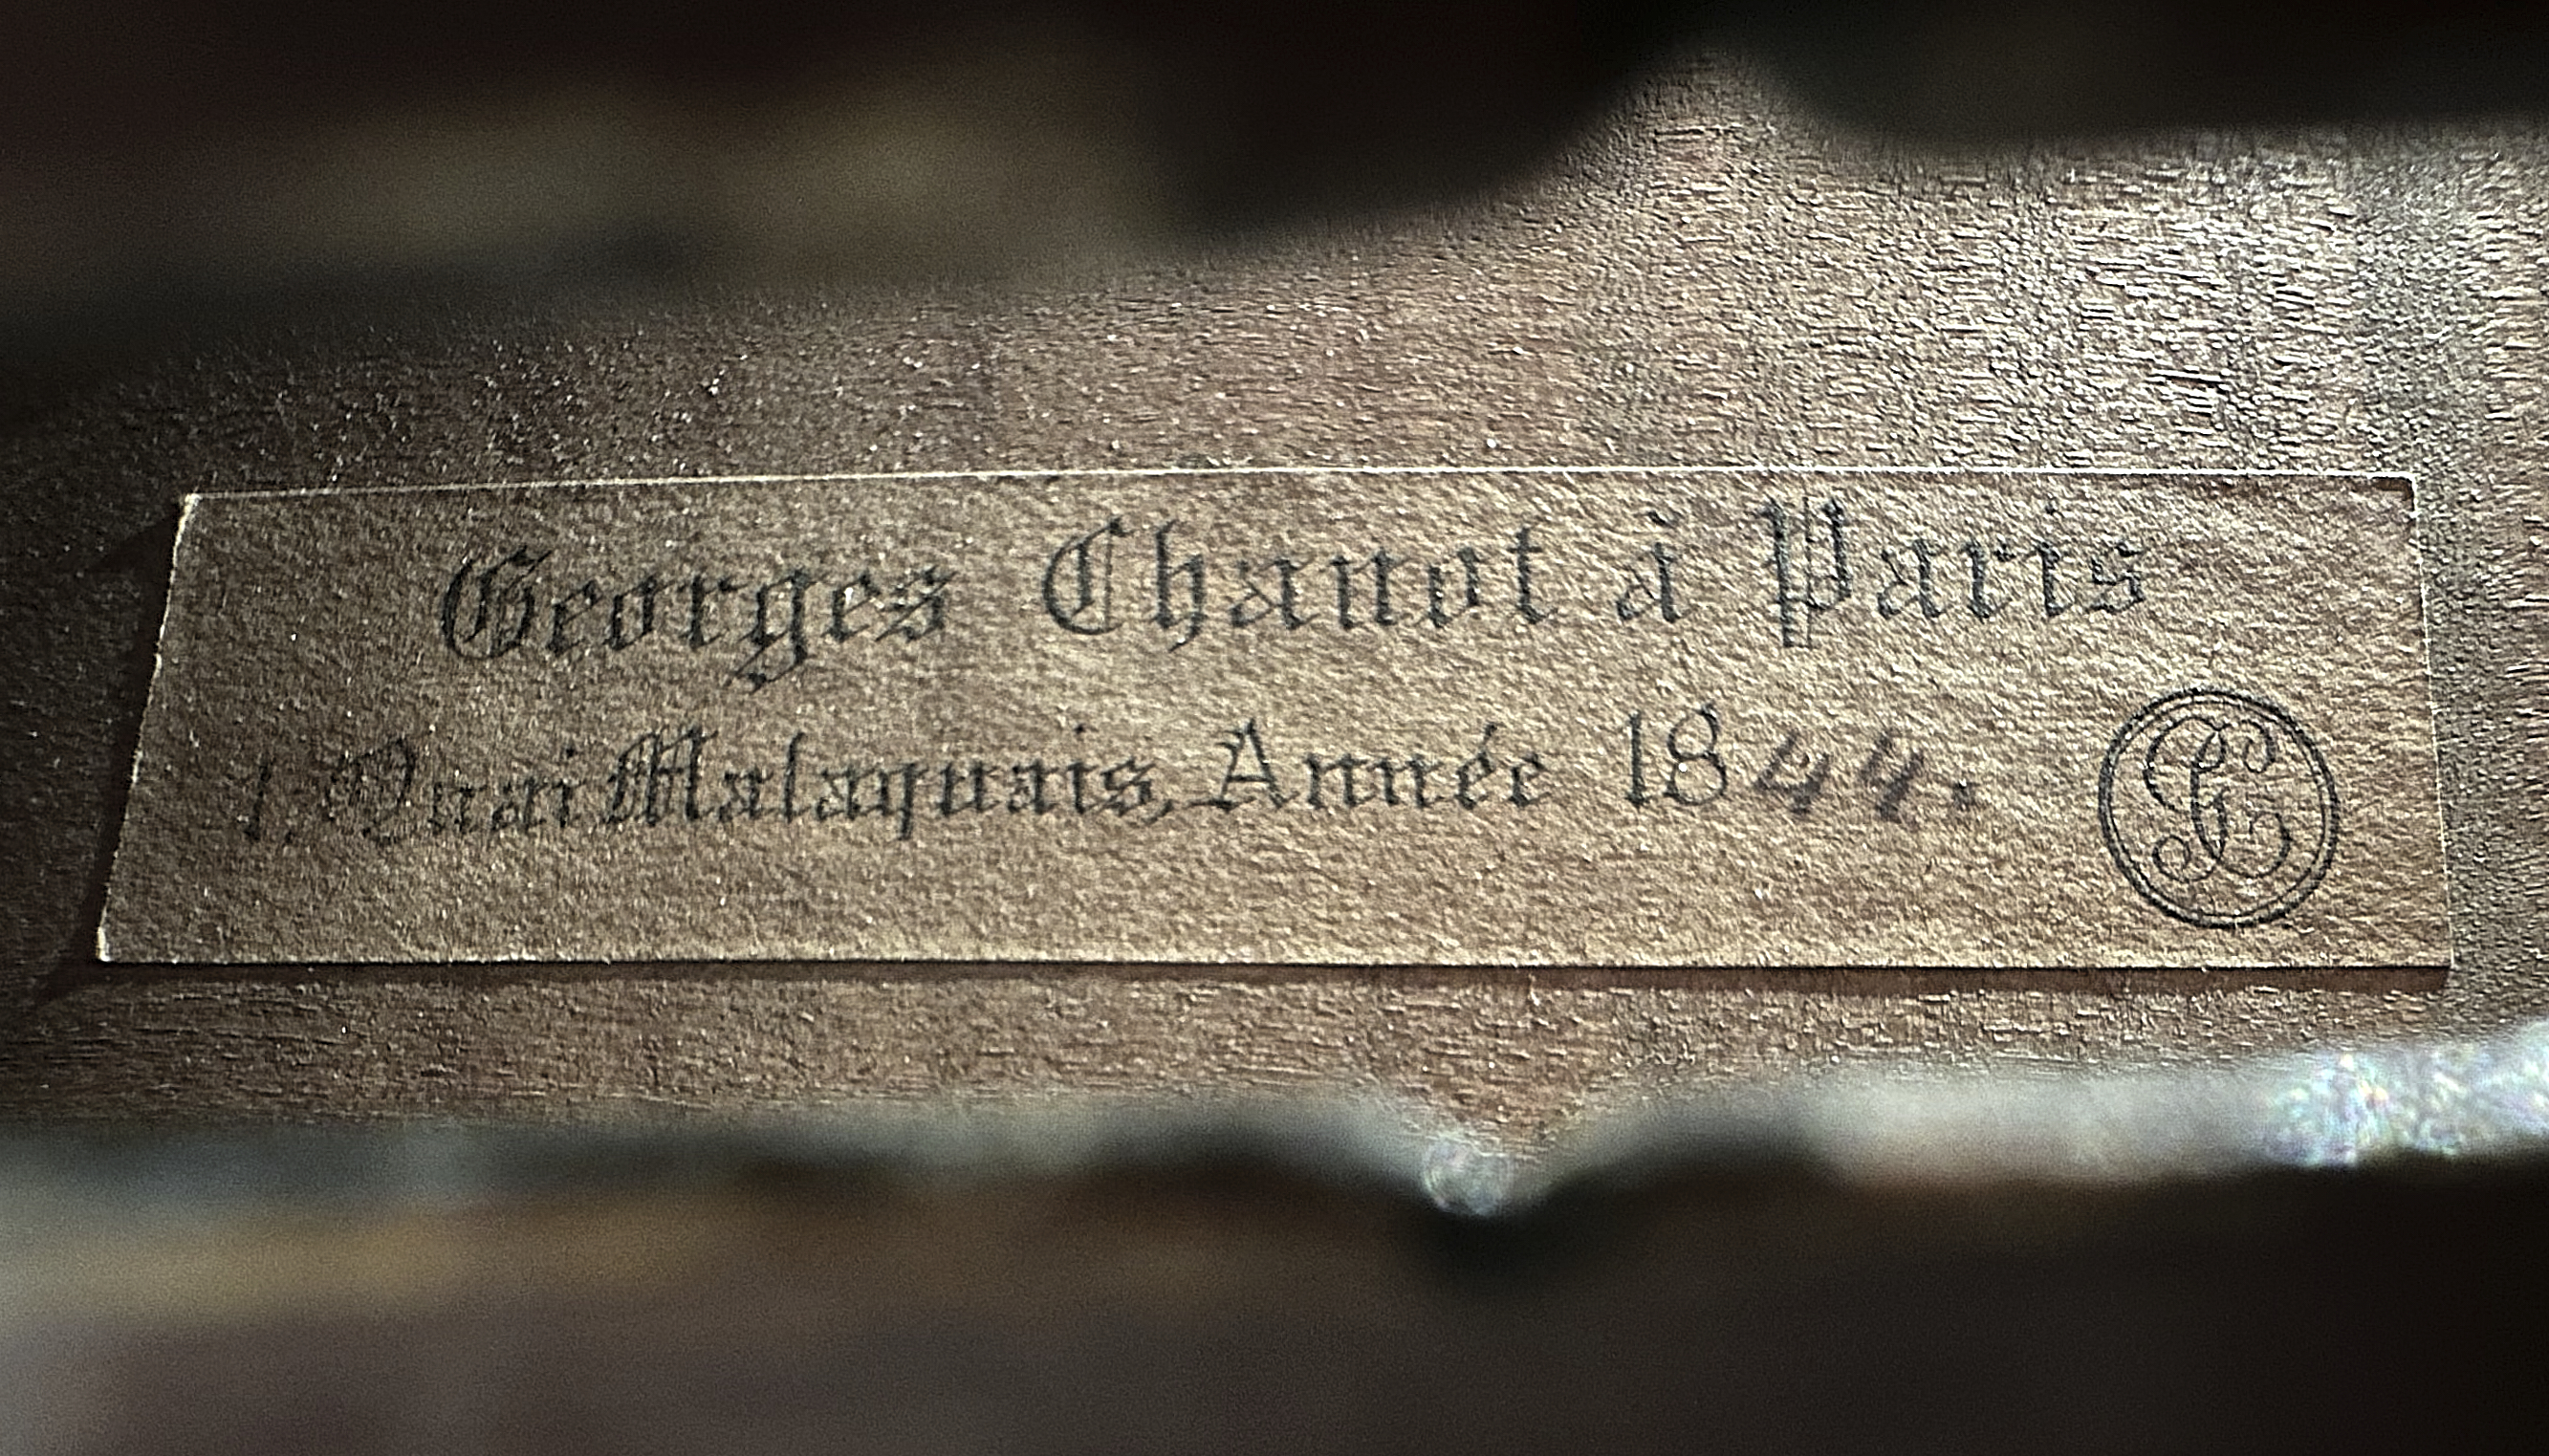 Georges Chanot à Paris
1, Quai Malaquais, Année 1844.
GC